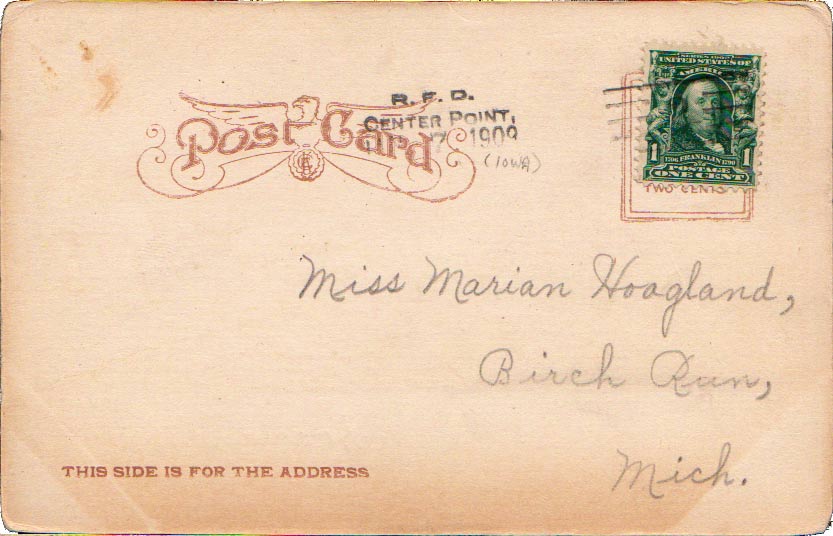 SERIES 1902
UNITED STATES OF
AMERICA
R. F. D.
CENTER POINT,
7 1909
Post Card
(IOWA)
1 1706 FRANKLIN 1790 1
POSTAGE
ONE CENT
TWO CENTS
Miss Marian Hoagland,
Birch Run,
Mich.
THIS SIDE IS FOR THE ADDRESS